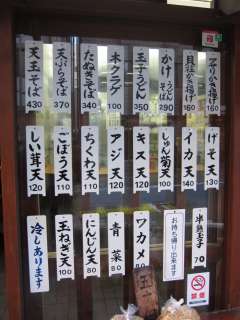 天玉そば 430
天ぷらそば 370
たぬきそば 340
木クラゲ 100
玉子うどん 350
かけそばうどん 290
貝柱かき揚げ 160
しい茸天 120
ごぼう天 110
ちくわ天 110
アジ天 120
キス天 130
しゅん菊天 100
イカ天 140
げそ天 130
冷しあります
玉ねぎ天 100
にんじん天 80
青菜 80
ワカメ 80
お持ち帰り出来ます
半熟玉子 70
禁煙